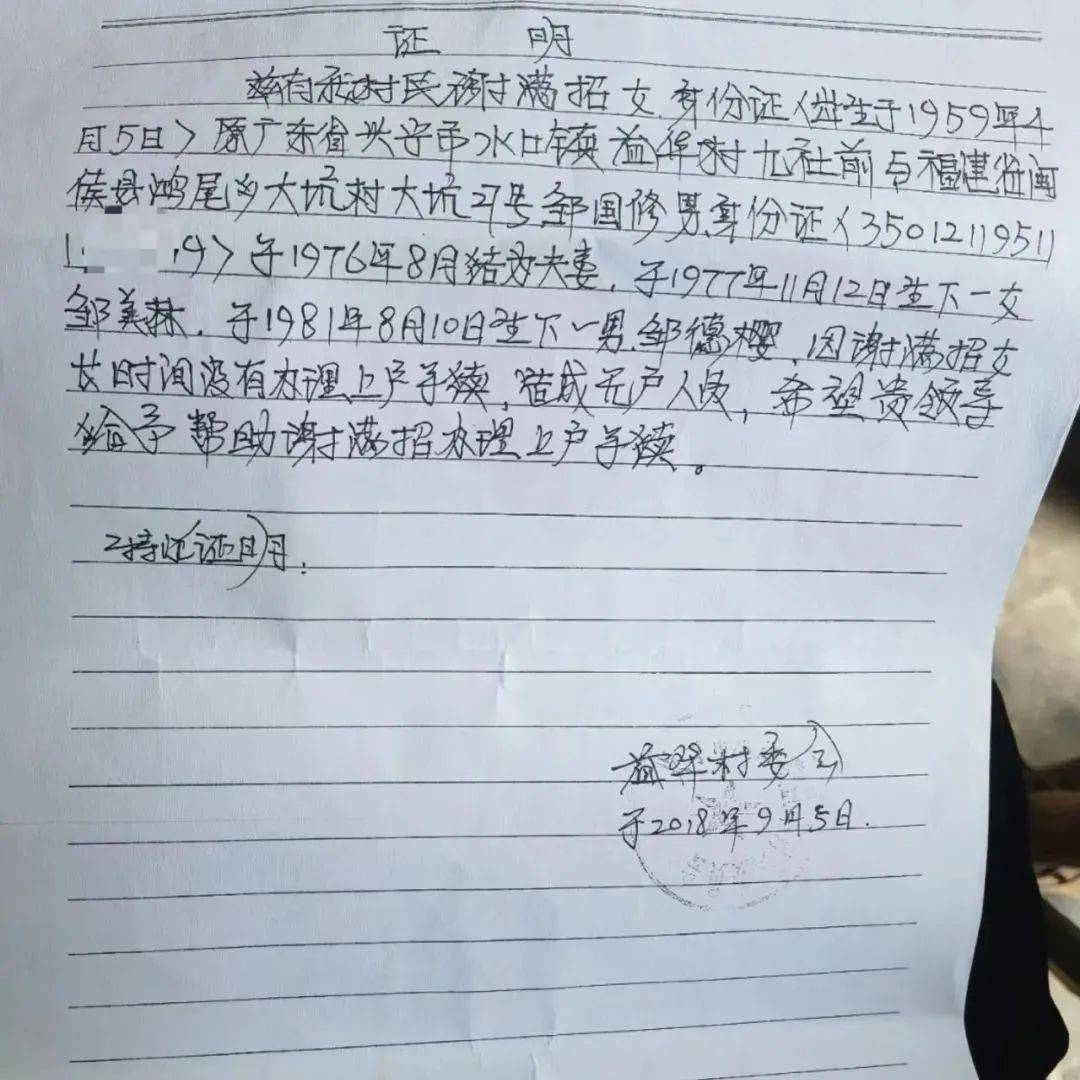 证 明
兹有我村民谢满招女.身份证〈出生于1959年4
月5日〉原广东省兴宁市水口镇益华村九社前与福建省闽
侯县鸿尾乡大坑村大坑27号邹国修男.身份证〈35012119511
19〉于1976年8月结为夫妻,于1977年11月12日生下一女
邹美林.于1981年8月10日生下一男.邹德樱,因谢满招女
女时间没有办理上户手续,造成无户人员,希望贵领导
给予帮助谢满招办理上户手续。
特此证明.
益华村委会
于2018年9月5日.